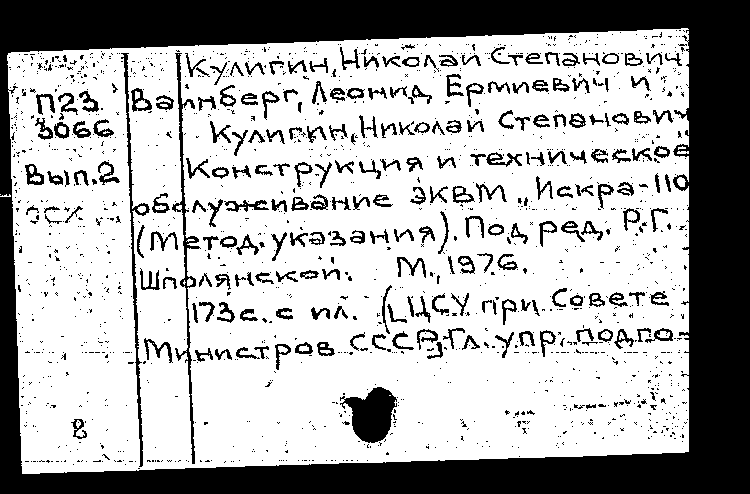 Кулигин, Николай Степанович.
П23 Вайнберг, Леонид Ермиевич и
3066 Кулигин, Николай Степанович
Вып.2 Конструкция и техническое
обслуживание ЭКВМ „Искра-110
(Метод. указания). Под ред. Р.Г.
Шполянской. М., 1976.
173с. с ил. ([ЦСУ при Совете
Министров СССР]. Гл. упр. подго-
8